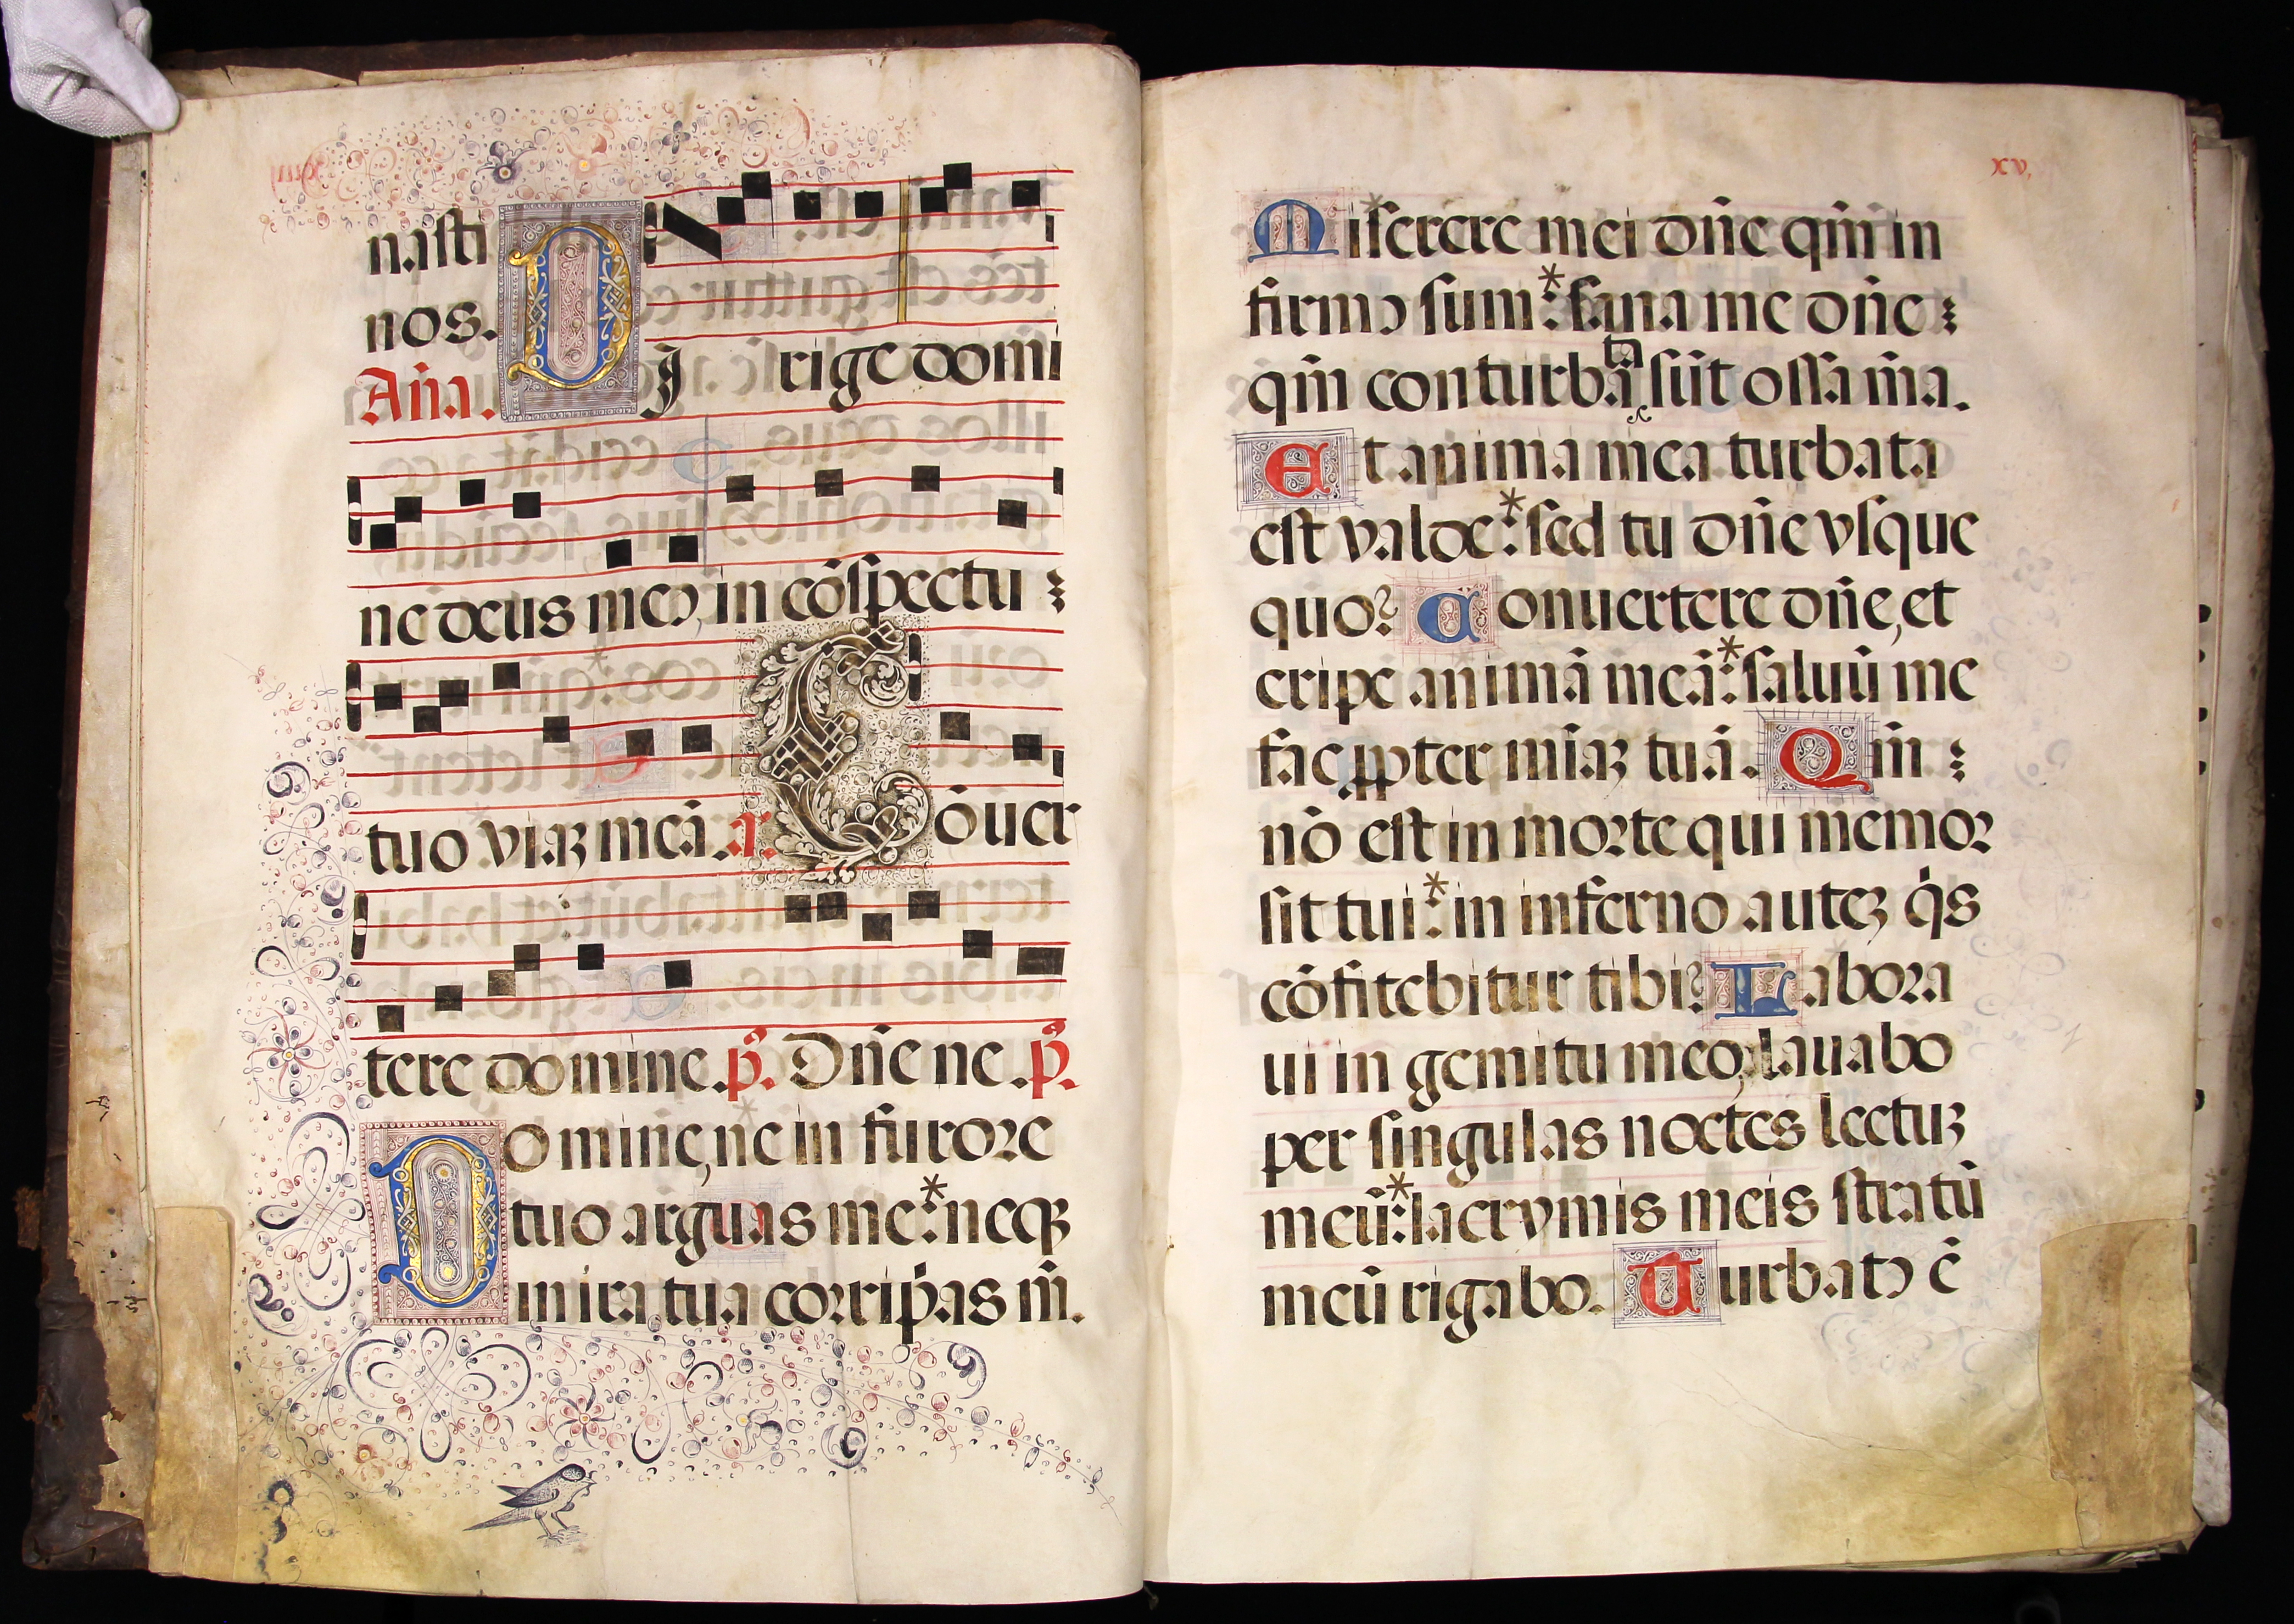 nasti
nos.
Aña.
DJ rige domi
ne deus meꝰ, in cõspectu
tuo viaꝫ meã. a. Cõuer
tere domine. p̃s. Dñe ne. p̃s.
Domine, ne in furore
tuo arguas me: * neqꝫ
in ira tua corripias m̃.
xv,
Miserere mei dñe qm̃ in
firmꝰ sum: * sana me dñe
qm̃ conturbata sũt ossa m̃a.
Et anima mea turbata
est valde: * sed tu dñe vsque
quo? Conuertere dñe, et
eripe animã meã: * saluũ me
fac ꝓpter mĩaꝫ tuã. Qm̃
nõ est in morte qui memor
sit tui: * in inferno auteꝫ q̇s
cõfitebitur tibi? Labora
ui in gemitu meo, lauabo
per singulas noctes lectuꝫ
meũ: * lacrymis meis stratũ
meũ rigabo. Turbatꝰ ẽ